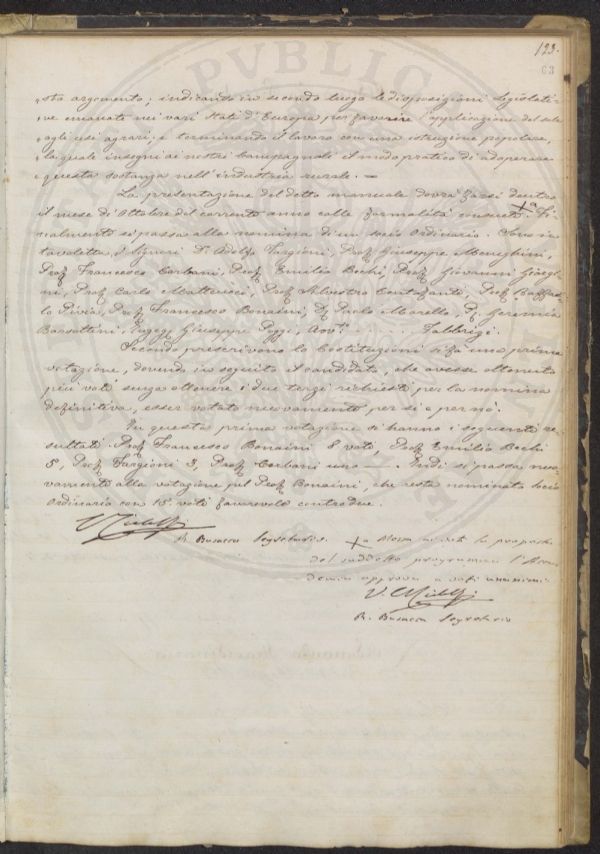 123.
63
sto argomento; indicando in secondo luogo le disposizioni legislati-
ve emanate nei vari Stati d'Europa per favorire l'applicazione del sale
agli usi agrari; e terminando il lavoro con una istruzione popolare,
la quale insegni ai nostri Campagnuoli il modo pratico di adoperare
questa sostanza nell'industria rurale. =
La presentazione del detto manuale dovrà farsi dentro
il mese di Ottobre del corrente anno colle formalità consuete. +a Fi-
nalmente si passa alla nomina di un socio Ordinario. Sono in
tavoletta i Signori Dr. Adolfo Targioni, Prof. Giuseppe Meneghini,
Prof. Francesco Corbani, Prof. Emilio Bechi, Prof. Giovanni Giorgi-
ni, Prof. Carlo Matteucci, Prof. Silvestro Centofanti, Prof. Raffael-
lo Piria, Prof. Francesco Bonaini, D. Paolo Morello, D. Geremia
Barsottini, Ingeg. Giuseppe Poggi, Avv. ..... Fabbrizi.
Secondo prescrivono le Costituzioni si fa una prima
votazione, dovendo in seguito il candidato, che avesse ottenuto
più voti senza ottenere i due terzi richiesti per la nomina
definitiva, esser votato nuovamente per sì e per nò.
In questa prima votazione si hanno i seguenti re-
sultati: Prof. Francesco Bonaini 8 voti, Prof. Emilio Bechi
5, Prof. Targioni 3, Prof. Corbani uno —. Indi si passa nuo-
vamente alla votazione pel Prof. Bonaini, che resta nominato socio
Ordinario con 15 voti favorevoli contro due.
R. Busacca Segretario
+a Messa ai voti la proposta
del suddetto programma l'Acca-
demia approva a voti unanimi.
R. Busacca Segretario